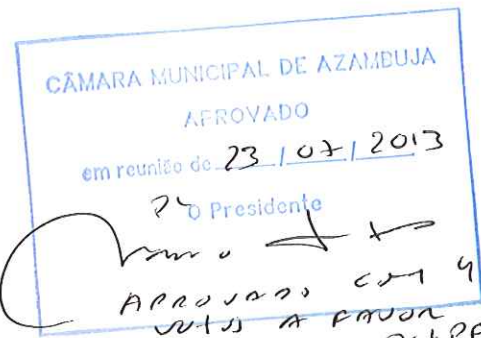 CÂMARA MUNICIPAL DE AZAMBUJA
APROVADO
em reunião de 23 / 07 / 2013
O Presidente
APROVADO COM 4
VOTOS A FAVOR